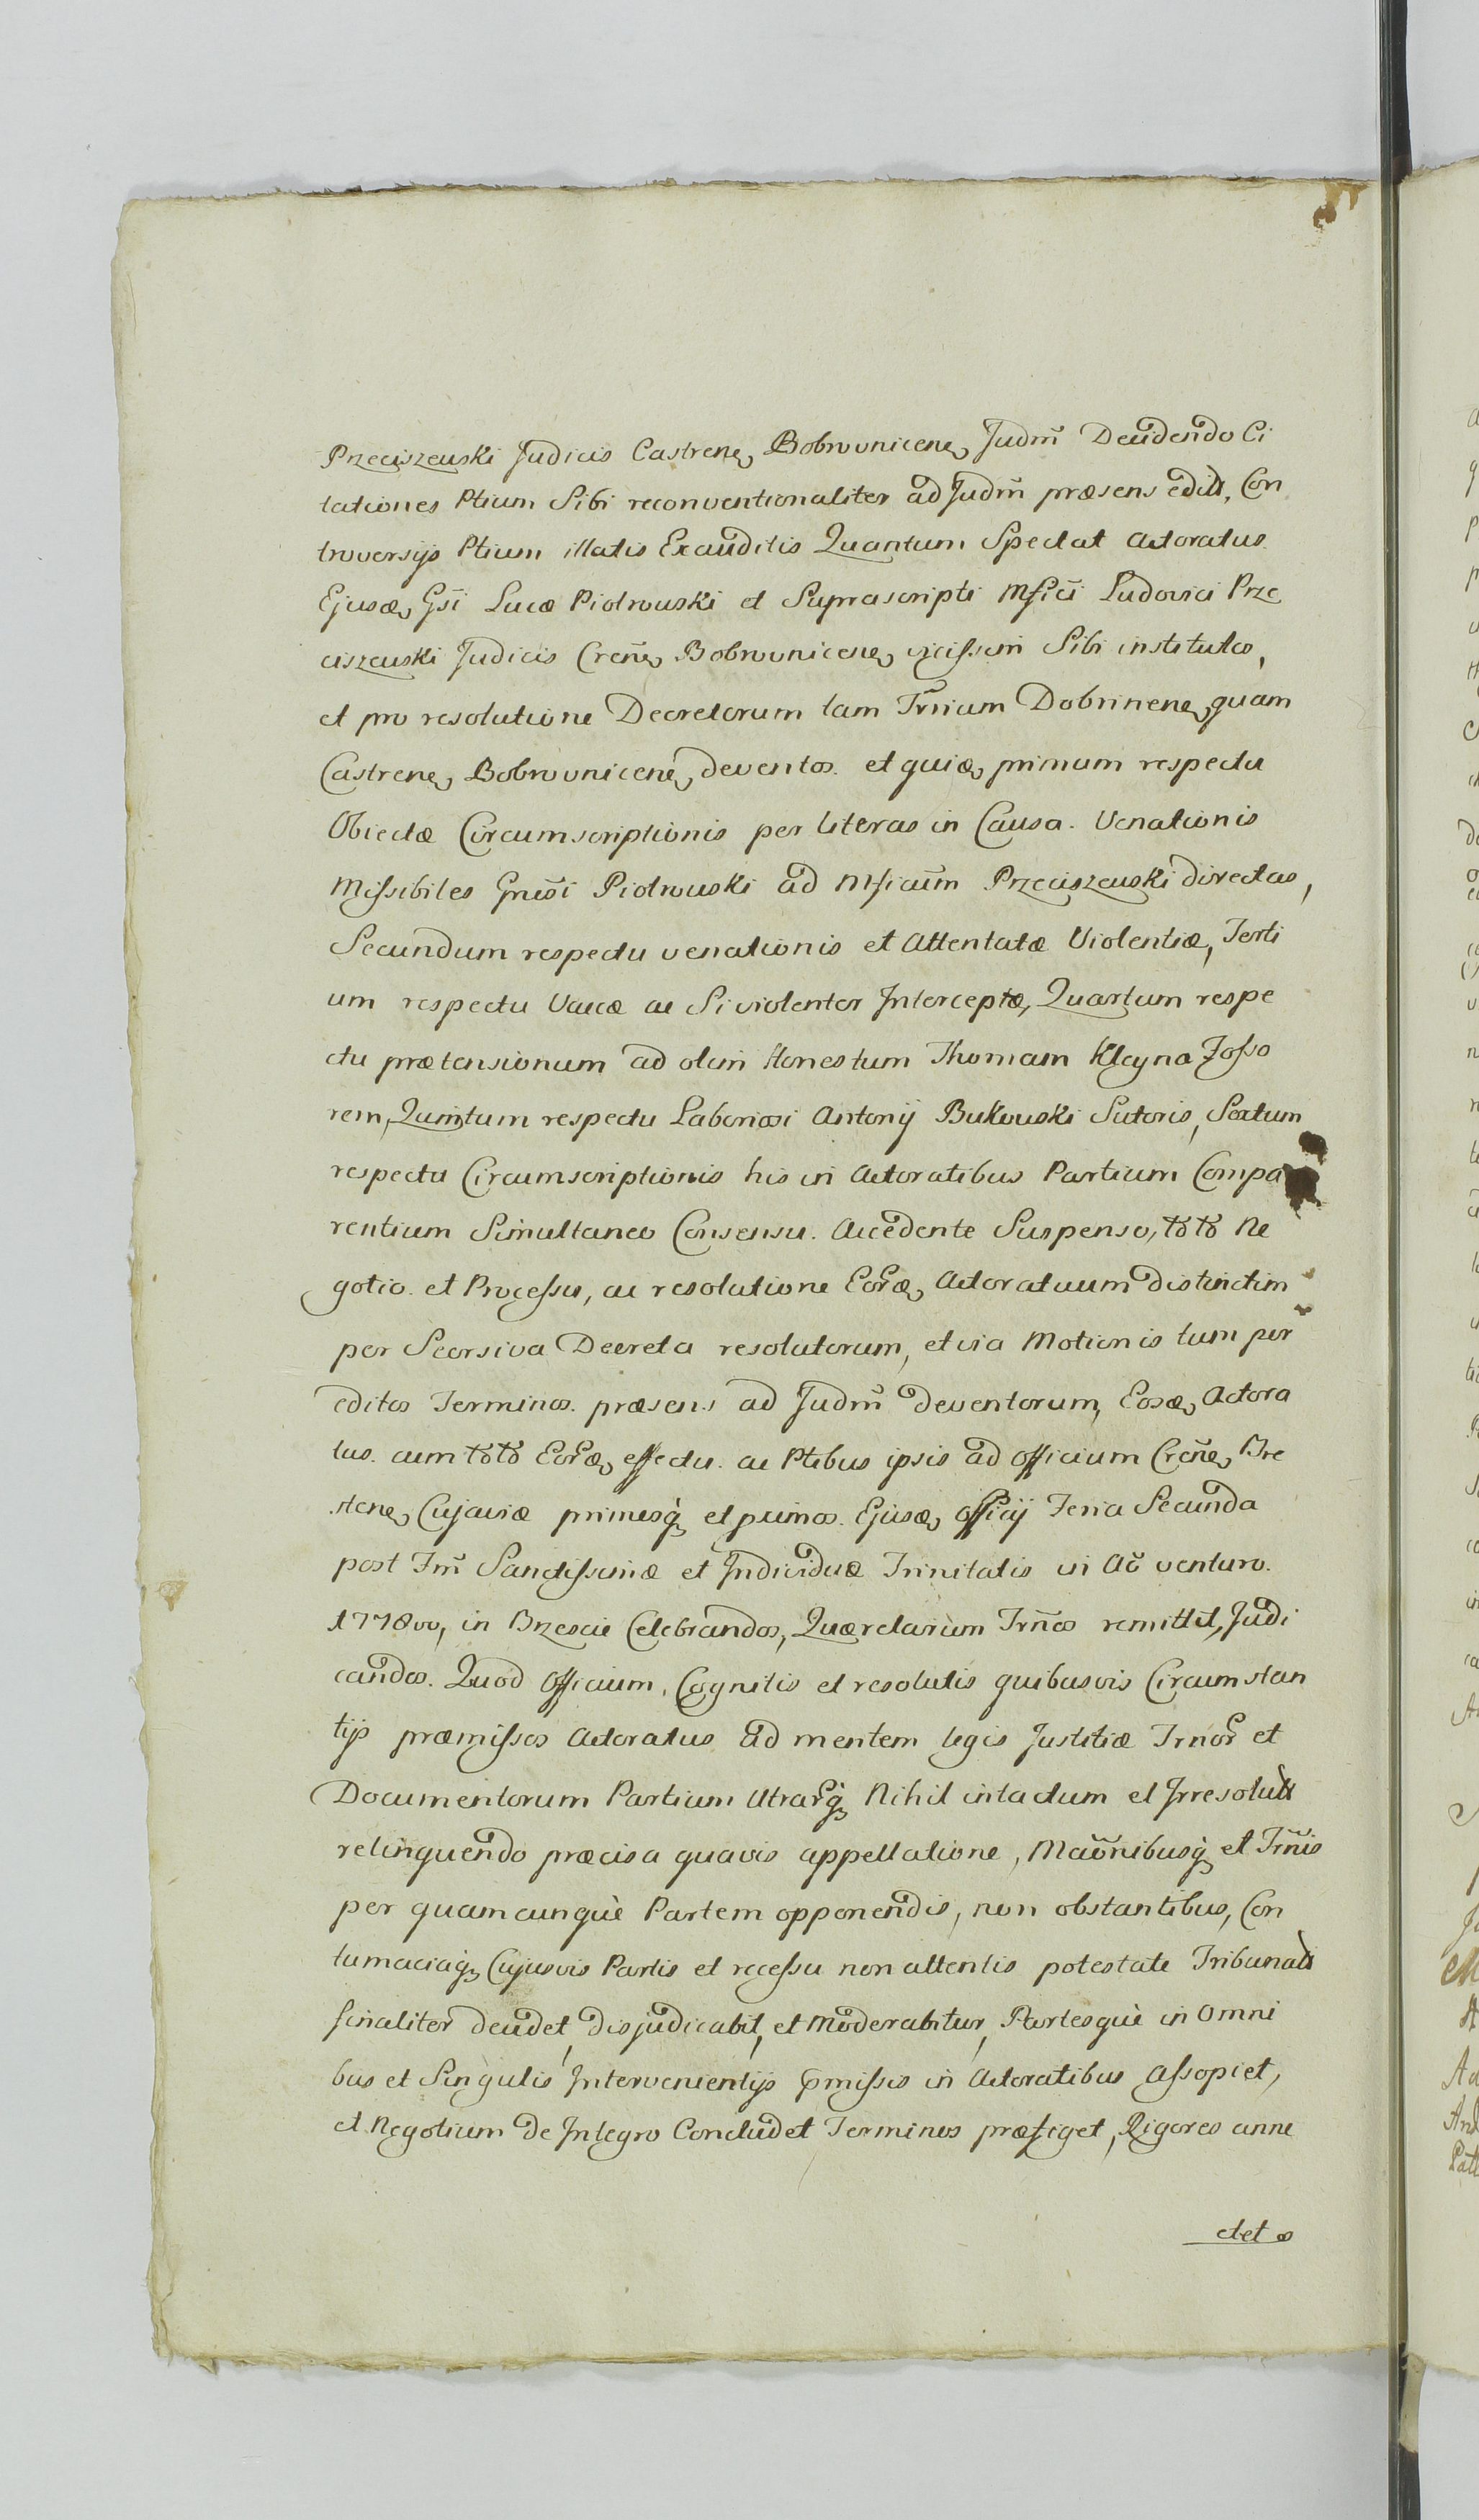 Przeciszewski Judicis Castrene, Bobrovnicene, Judm̃ Decidendo Ci
tationes Ptium Sibi reconventionaliter ad Judm̃ præsens edita, Con
troversijs Ptium illatis Exauditis Quantum Spectat Actoratus
Ejusd, Gsi Lucæ Piotrowski et Suprascripti Mfici Ludovici Prze
ciszewski Judicis Creñe, Bobrovnicene, vicissim Sibi institutos,
et pro resolutione Decretorum tam Trrium Dobrinene, quam
Castrene, Bobrovnicene, deventos. et quid, primum respectu
Obiectæ Circumscriptionis per literas in Causa. Venationis
Missibiles Gnosi Piotrowski ad Mficum Przeciszewski directas,
Secundum respectu venationis et Attentatæ Violentiæ, Terti
um respectu Vaccæ ac Si violenter Interceptæ, Quartum respe
ctu prætensionum ad olim Honestum Thomam Kleyna Fosso
rem, Quintum respectu Laboriosi Antonij Bukowski Sutoris, Sextum
respectu Circumscriptionis his in Actoratibus Partium Compa
rentium Simultaneo Consensu. Accedente Suspenso, toto Ne
gotio. et Processu, ac resolutione Eord, Actoratuum distinctim
per Seorsiva Decreta resolutorum, et via Motionis tum per
editos Terminos. præsens ad Judm̃ deventorum, Eosd, Actora
tus. cum toto Eord, effectu. ac Ptibus ipsis ad Officium Creñe, Bre
stene, Cujaviæ primosq, et primos. Ejusd, Officij Feria Secunda
post Fm̃ Sanctissimæ et Individuæ Trinitatis in Ao venturo.
1778vo, in Brzescie Celebrandos, Quærelarum Trños remittit, Judi
candos. Quod Officium, Cognitis et resolutis quibusvis Circumstan
tijs præmissos Actoratus ad mentem legis Justitiæ Trnor et
Documentorum Partium Utrarq, Nihil intactum et Irresolutt
relinquendo præcisa quavis appellatione, Maonibusq, et Trñis
per quamcunquè Partem opponendis, non obstantibus, Con
tumaciaq, Cujusvis Partis et recessu non attentis potestate Tribunali
finaliter decidet, disjudicabit, et Moderabitur, Partesquè in Omni
bus et Singulis Intervenientijs pmissis in Actoratibus Assopiet,
et Negotium de Integro Concludet Terminos præfiget, Rigores anne
ctet